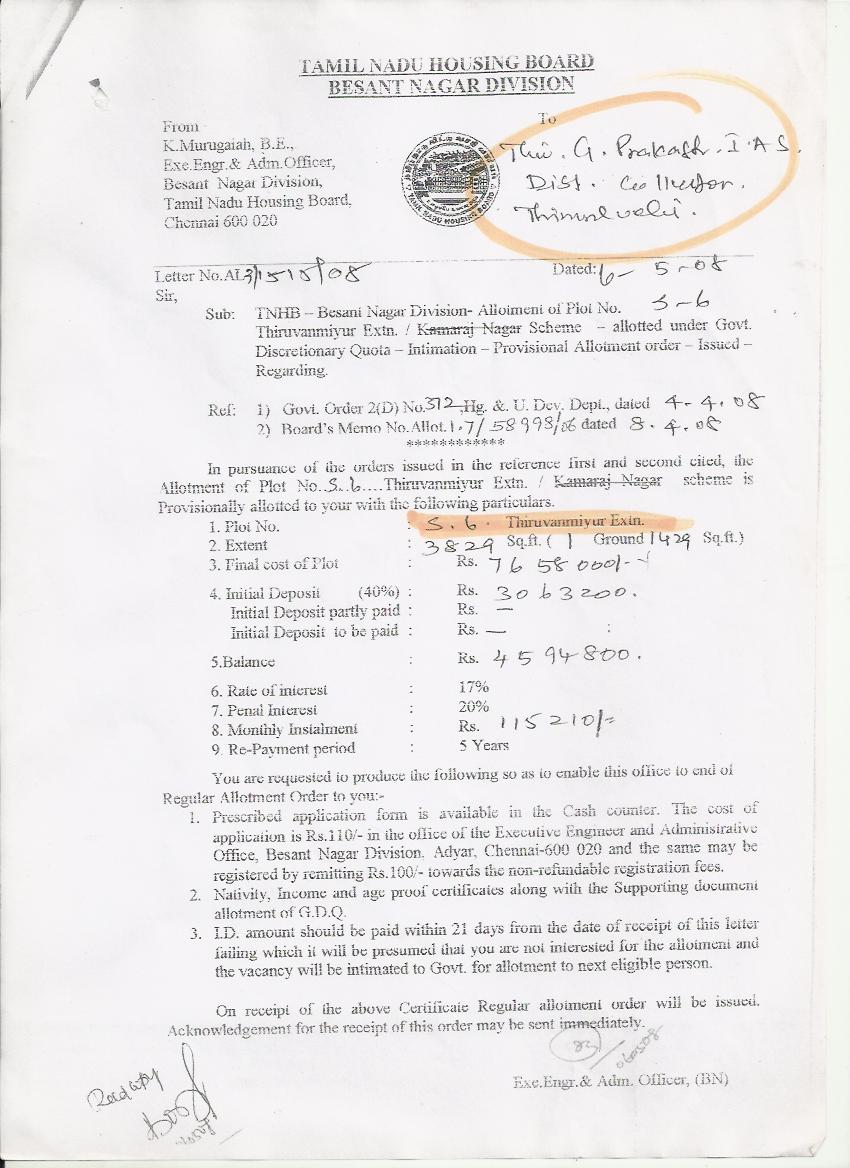 TAMIL NADU HOUSING BOARD
BESANT NAGAR DIVISION
From
K.Murugaiah, B.E.,
Exe.Engr.& Adm.Officer,
Besant Nagar Division,
Tamil Nadu Housing Board,
Chennai 600 020
TAMIL NADU HOUSING BOARD
To
Thiru. G. Prakash. I.A.S.
Dist. Collector.
Thirunelveli.
Letter No.AL3/1515/08
Dated: 6-5-08
Sir,
Sub: TNHB – Besant Nagar Division- Allotment of Plot No. S-6
Thiruvanmiyur Extn. / Kamaraj Nagar Scheme – allotted under Govt.
Discretionary Quota – Intimation – Provisional Allotment order – Issued –
Regarding.
Ref: 1) Govt. Order 2(D) No.372,Hg. & U. Dev. Dept., dated 4-4.08
2) Board's Memo No.Allot.1.7/58998/06 dated 8.4.08
************
In pursuance of the orders issued in the reference first and second cited, the
Allotment of Plot No..S.6....Thiruvanmiyur Extn. / Kamaraj Nagar scheme is
Provisionally allotted to your with the following particulars.
1. Plot No. : S.6. Thiruvanmiyur Extn.
2. Extent : 3829 Sq.ft. ( 1 Ground 1429 Sq.ft.)
3. Final cost of Plot : Rs. 7658000/-
4. Initial Deposit (40%) : Rs. 3063200.
Initial Deposit partly paid : Rs. —
Initial Deposit to be paid : Rs. — :
5.Balance : Rs. 4594800.
6. Rate of interest : 17%
7. Penal Interest : 20%
8. Monthly Instalment : Rs. 115210/-
9. Re-Payment period : 5 Years
You are requested to produce the following so as to enable this office to end of
Regular Allotment Order to you:-
1. Prescribed application form is available in the Cash counter. The cost of
application is Rs.110/- in the office of the Executive Engineer and Administrative
Office, Besant Nagar Division, Adyar, Chennai-600 020 and the same may be
registered by remitting Rs.100/- towards the non-refundable registration fees.
2. Nativity, Income and age proof certificates along with the Supporting document
allotment of G.D.Q.
3. I.D. amount should be paid within 21 days from the date of receipt of this letter
failing which it will be presumed that you are not interested for the allotment and
the vacancy will be intimated to Govt. for allotment to next eligible person.
On receipt of the above Certificate Regular allotment order will be issued.
Acknowledgement for the receipt of this order may be sent immediately.
060508
Exe.Engr.& Adm. Officer, (BN)